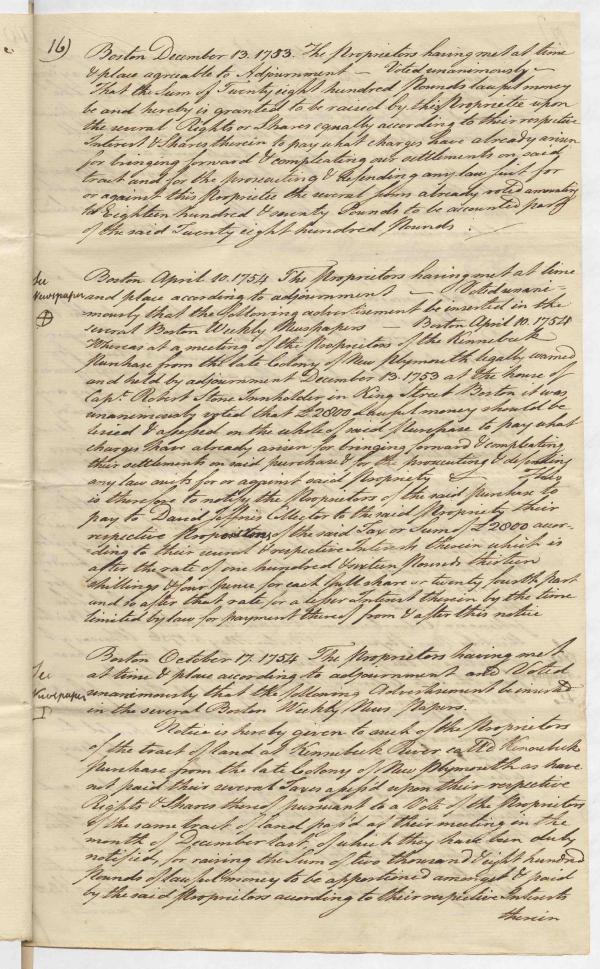 16)
Boston December 13. 1753. The Proprietors having met at time
& place agreable to Adjournment — Voted unanimously —
That the Sum of Twenty eight hundred Pounds lawful money
be and hereby is granted to be raised by this Proprietee upon
the several Rights or Shares equally according to their respective
Interest & Shares therein to pay what charges have already arisen
for bringing forward & compleating our settlements on said
tract and for the prosecuting & defending any law suit for
or against this Proprietee the several sums already voted amounting
to Eighteen hundred & seventy Pounds to be accounted part
of the said Twenty eight hundred Pounds.
See
Newspaper
Boston April 10. 1754 The Proprietors having met at time
and place according to adjournment — Voted unani-
mously that the following advertisement be inserted in the
several Boston Weekly Newspapers — Boston April 10. 1754
Whereas at a meeting of the Proprietors of the Kennebeck
Purchase from the late Colony of New Plymouth legally warned
and held by adjournment December 13. 1753 at the house of
Capt. Robert Stone Innholder in King Street Boston it was
unanimously voted that £2800 Lawful money should be
levied & assessed on the whole of said Purchase to pay what
charges have already arisen for bringing forward & compleating
their settlements on said purchase & for the prosecuting & defending
any law suits for or against said Propriety & — These
is therefore to notify the Proprietors of the said purchase to
pay to David Jeffries Collector to the said Propriety their
respective Proportions of the said Tax or Sum of £2800 accor-
ding to their several & respective Interests therein which is
after the rate of one hundred & sixteen Pounds thirteen
shillings & four pence for each full share or twenty fourth part
and so after that rate for a lesser Interest therein by the time
limited by law for payment thereof from & after this notice
See
Newspaper
Boston October 17. 1754 The Proprietors having met
at time & place according to adjournment and Voted
unanimously that the following Advertisement be inserted
in the several Boston Weekly News Papers.
Notice is hereby given to such of the Proprietors
of the tract of land at Kennebeck River called Kennebeck
purchase from the late Colony of New Plymouth as have
not paid their several Taxes assess'd upon their respective
Rights & Shares thereof pursuant to a Vote of the Proprietors
of the same tract of land pass'd at their meeting in the
month of December last, of which they have been duly
notified, for raising the Sum of two thousand & eight hundred
Pounds of lawful money to be apportioned amongst & paid
by the said Proprietors according to their respective Interests
therein